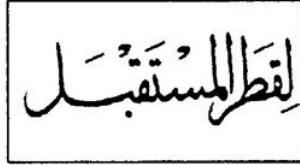 لقطر المستقبل